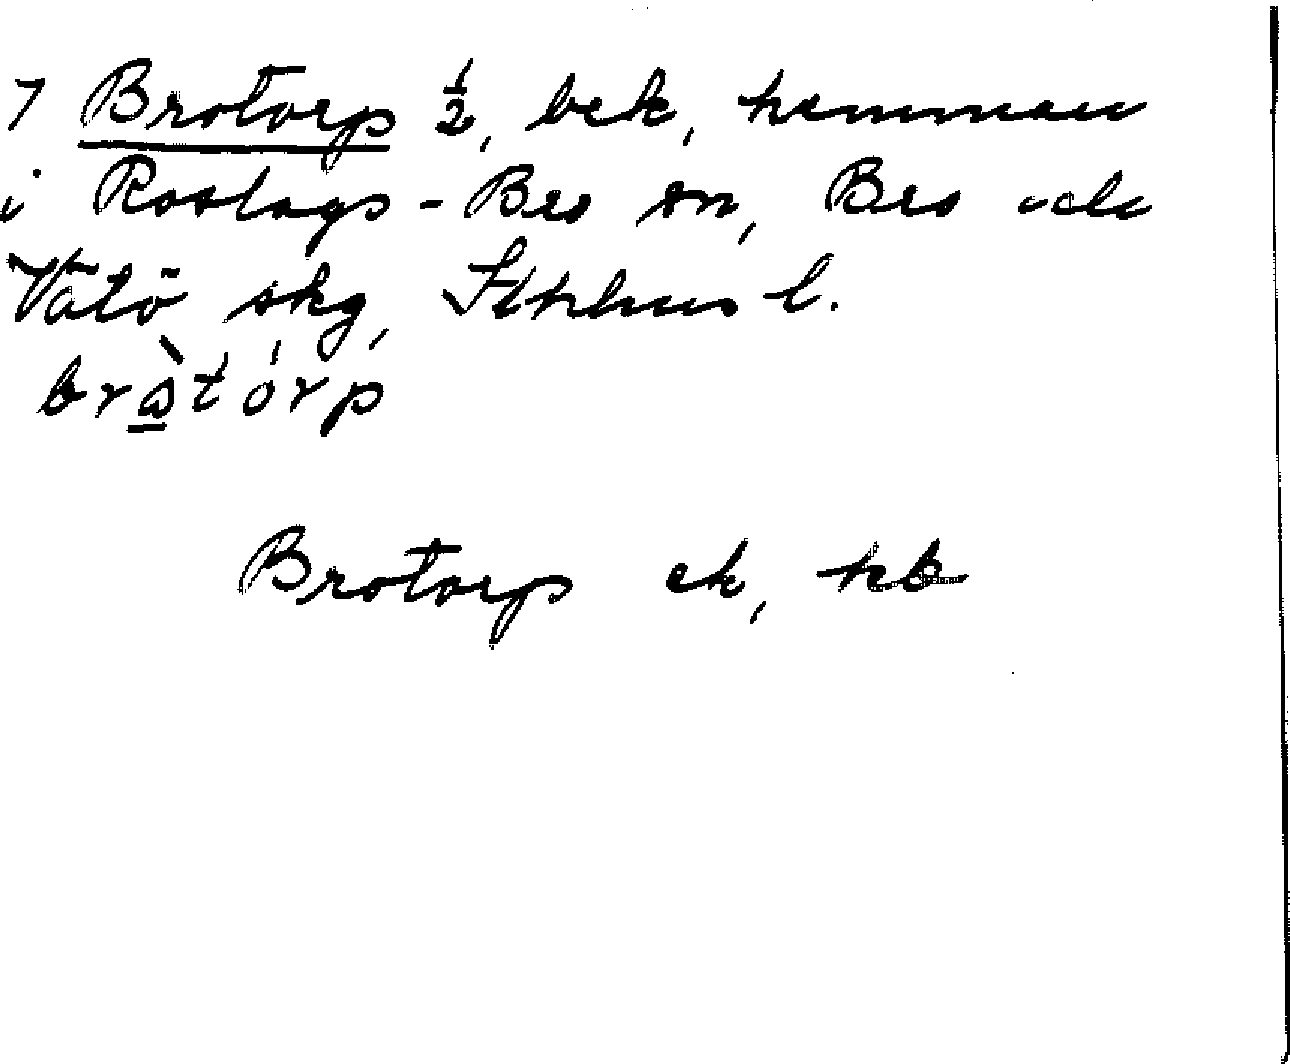 7 Brotorp ½, bek, hemman
i Roslags-Bro sn, Bro och
Vätö skg, Sthlms l.
bròtórp
Brotorp ek, hb